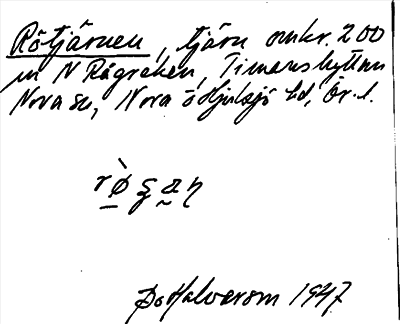 Rötjärnen, tjärn omkr. 200
m N Rågreken, Timanshyttan
Nora sn, Nora o Hjulsjö bd, Ör. l.
Bo Halvarson 1947.